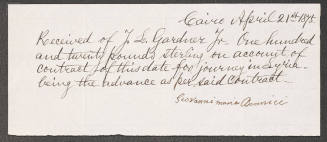 Cairo April 21st 1895
Received of J. L. Gardner Jr. One hundred
and twenty pounds sterling on account of
contract of this date for journey in Syria
being the advance as per said contract.
Giovanni maria